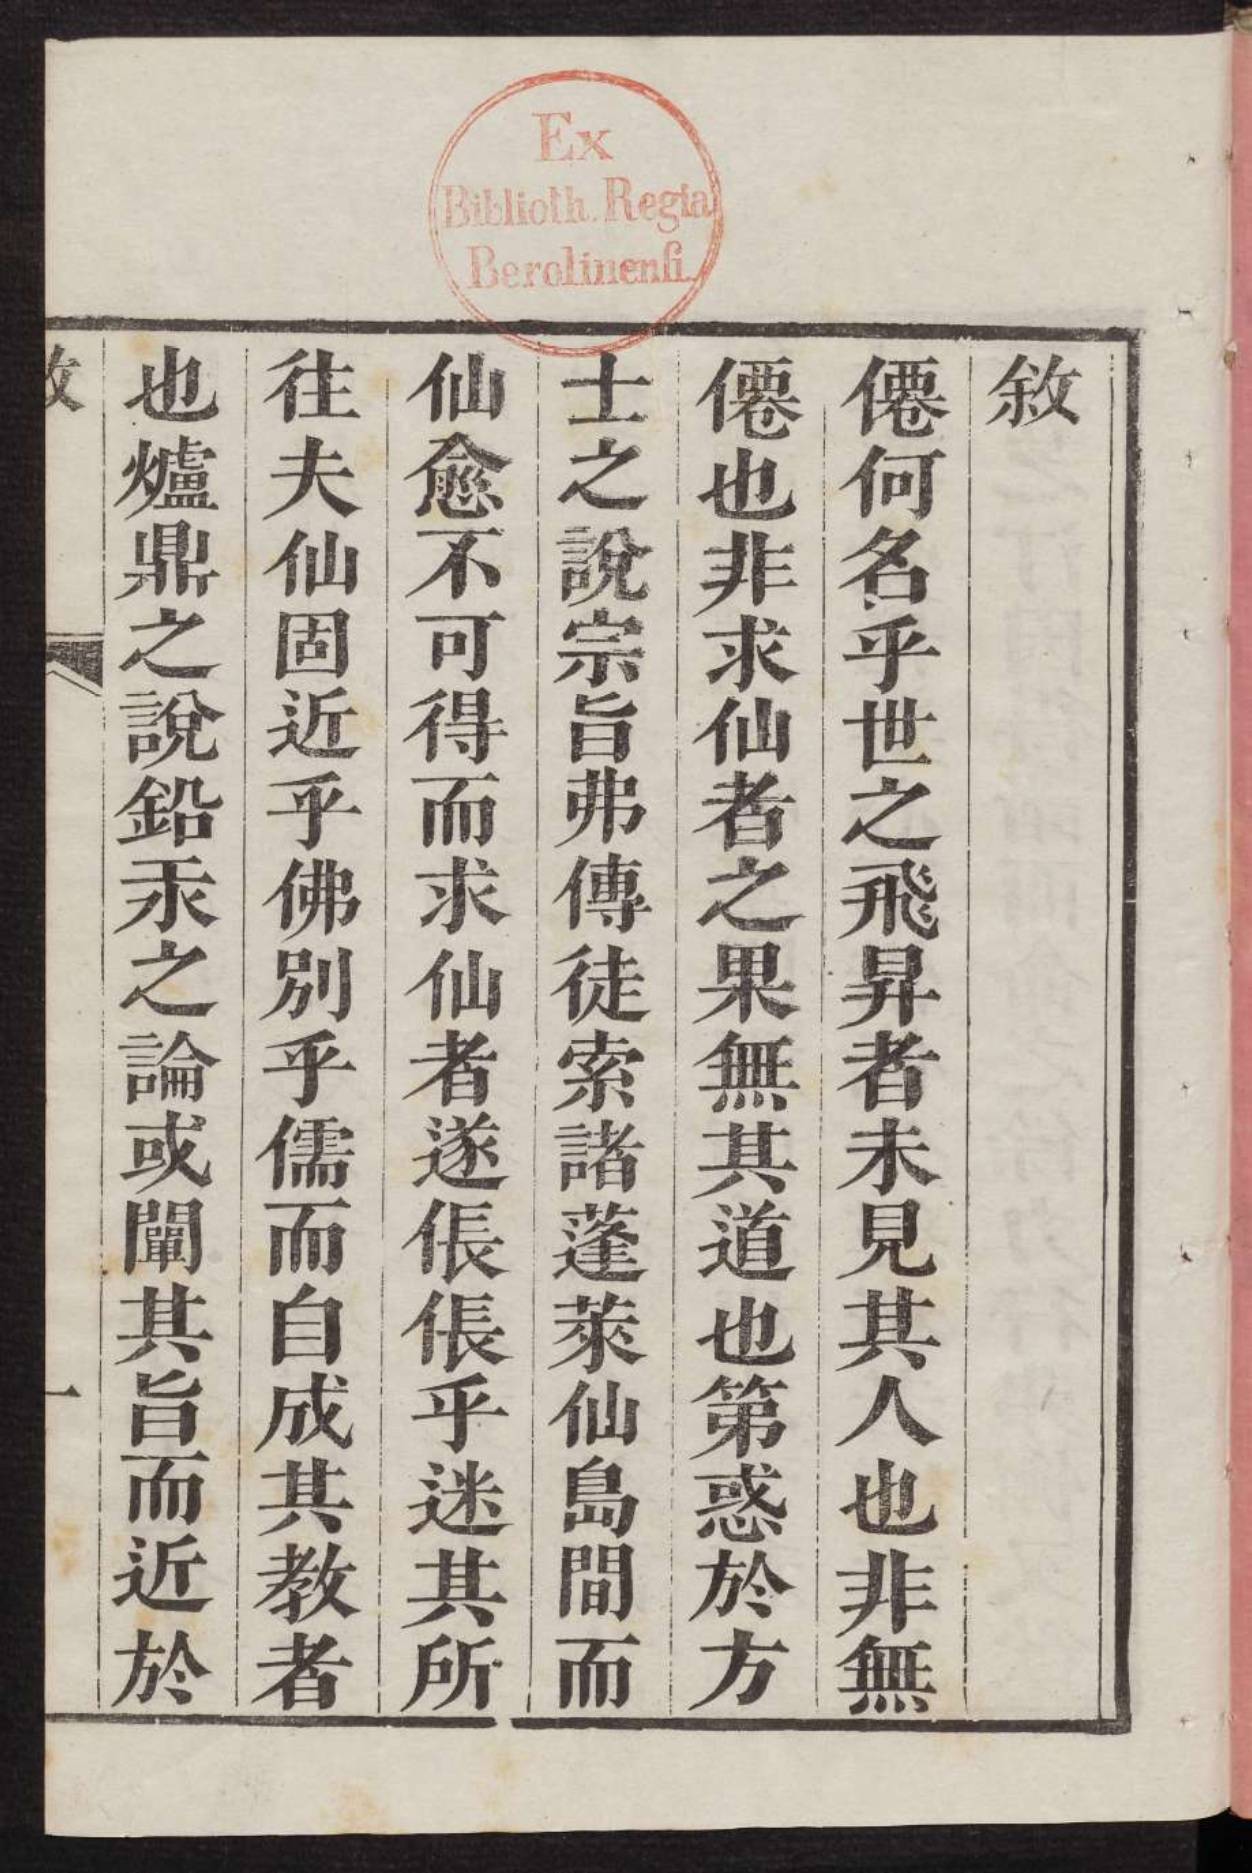 Ex
Biblioth. Regia
Berolinenſi.
敘
僊何名乎世之飛昇者未見其人也非無
僊也非求仙者之果無其道也第惑於方
士之說宗旨弗傳徒索諸蓬萊仙島間而
仙愈不可得而求仙者遂倀倀乎迷其所
往夫仙固近乎佛別乎儒而自成其教者
也爐鼎之說鉛汞之論或闡其旨而近於
一